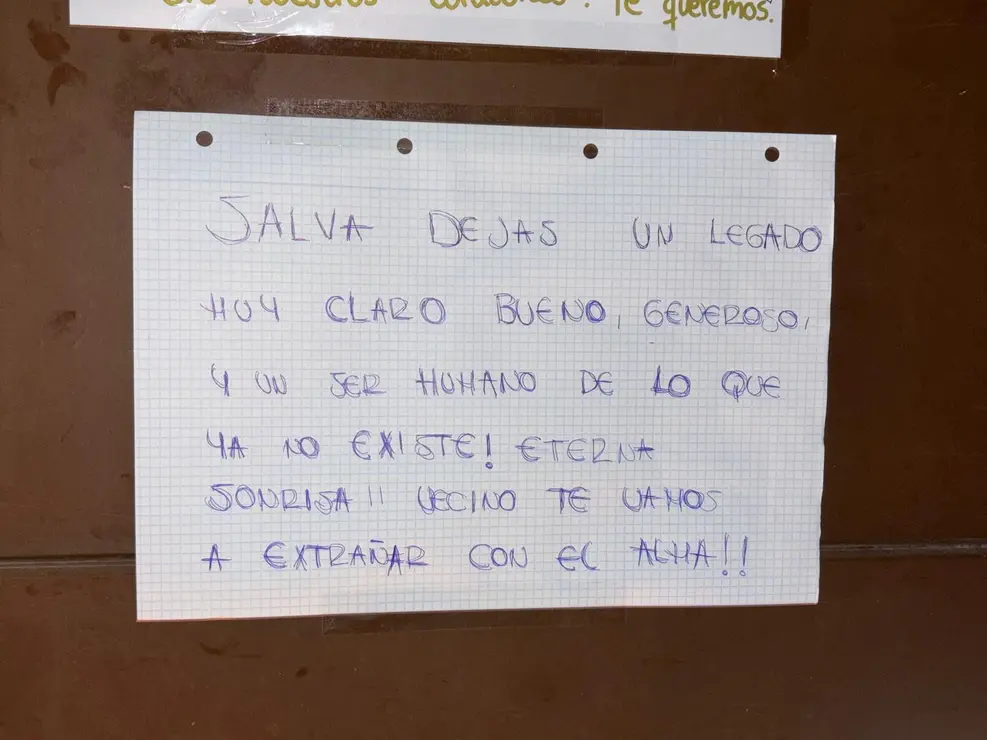 nuestros corazones. Te queremos.
SALVA DEJAS UN LEGADO
MUY CLARO BUENO, GENEROSO,
Y UN SER HUMANO DE LO QUE
YA NO EXISTE! ETERNA
SONRISA!! VECINO TE VAMOS
A EXTRAÑAR CON EL ALMA!!